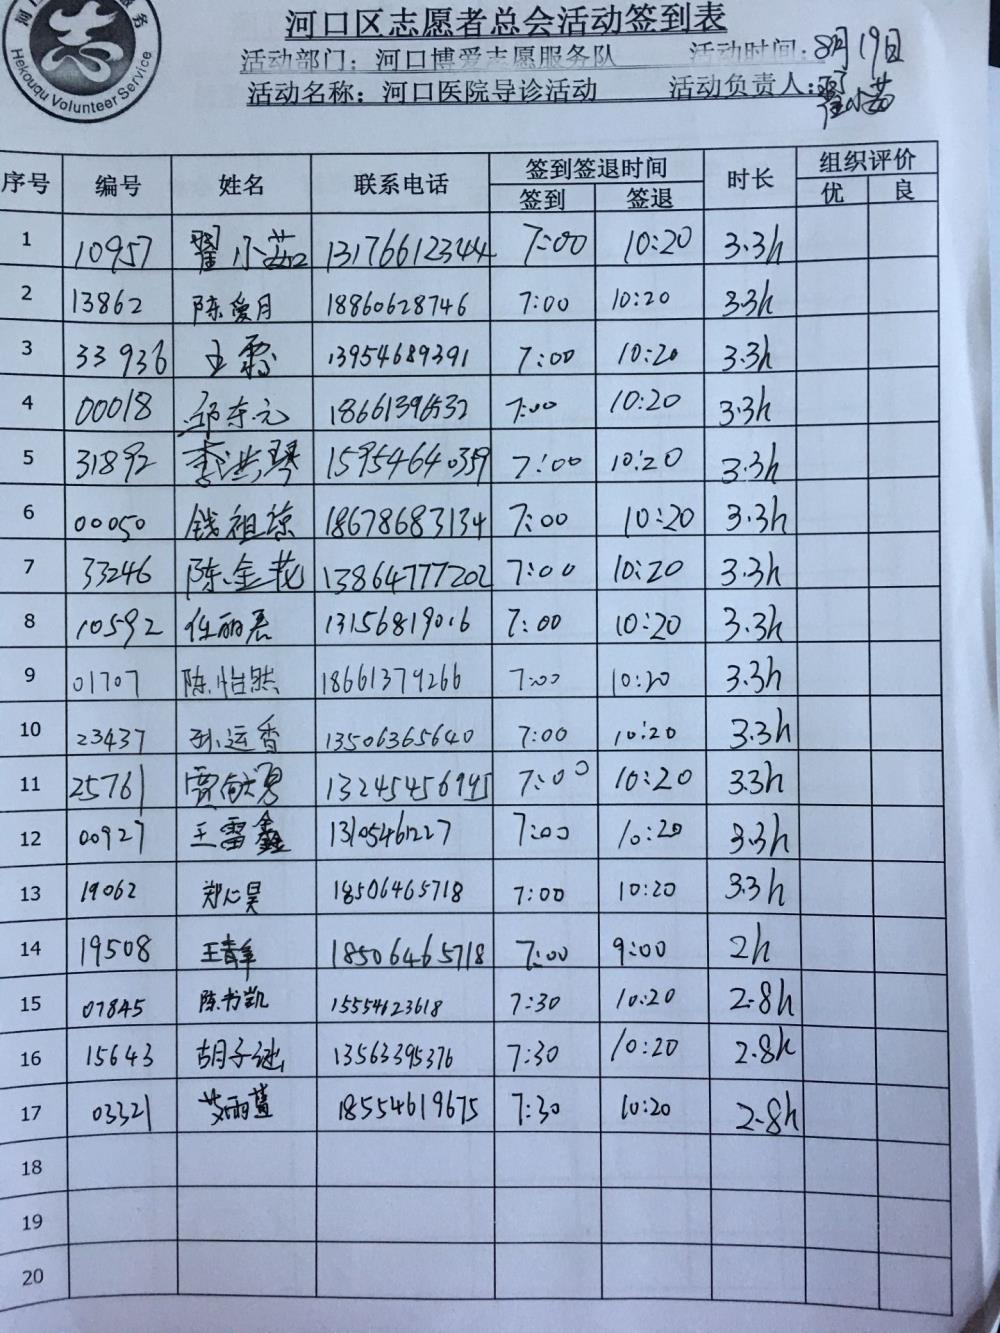 Hekouqu Volunteer Service
河口区志愿者总会活动签到表
活动部门：河口博爱志愿服务队 活动时间：8月19日
活动名称：河口医院导诊活动 活动负责人：翟小茹
序号 编号 姓名 联系电话 签到签退时间 时长 组织评价
签到 签退 优 良
1 10957 翟小茹 13176612344 7:00 10:20 3.3h
2 13862 陈爱月 18860628746 7:00 10:20 3.3h
3 33936 王霞 13954689391 7:00 10:20 3.3h
4 00018 邱东元 18661396532 7:00 10:20 3.3h
5 31892 李洪琴 15954640359 7:00 10:20 3.3h
6 00050 钱祖琼 18678683134 7:00 10:20 3.3h
7 33246 陈金花 13864777202 7:00 10:20 3.3h
8 10592 任丽君 13156819016 7:00 10:20 3.3h
9 01707 陈怡然 18661379266 7:00 10:20 3.3h
10 23437 孙运香 13506365640 7:00 10:20 3.3h
11 25761 贾 13245456945 7:00 10:20 3.3h
12 00927 王雷鑫 13105461227 7:00 10:20 3.3h
13 19062 郑心昊 18506465718 7:00 10:20 3.3h
14 19508 王青 18506465718 7:00 9:00 2h
15 07845 陈书凯 15554623618 7:30 10:20 2.8h
16 15643 胡子 13563395376 7:30 10:20 2.8h
17 03321 艾雨萱 18554619675 7:30 10:20 2.8h
18
19
20